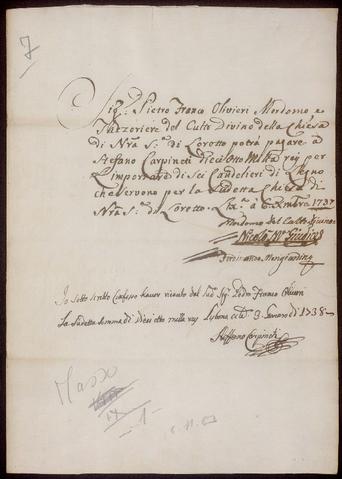 7
Sig.r Pietro Franco Olivieri Mordomo e
Thezoriere del Culto Divino della Chiesa
di Nr̃a S.a di Loretto potrà pagare a
Stefano Carpineti Dieci Otto Milla reis per
L'importare di Sei Candelieri di Legno
che servono per la Sudetta Chiesa di
Nr̃a S.a di Loretto. Lx.a à 6 Xmbre 1737
Mordomo del Culto Divino
Nicola M.a Giudice
Ferdinando Mongiardino
Io sotto scritto Confesso haver ricevuto dal Sud.o Sig. Pedro Franco Olivieri
La Sudetta Somma di Dieci otto milla rey Lisbona 9 Genaro di 1738
Steffano Carpineti
Masso
IX - 1 -